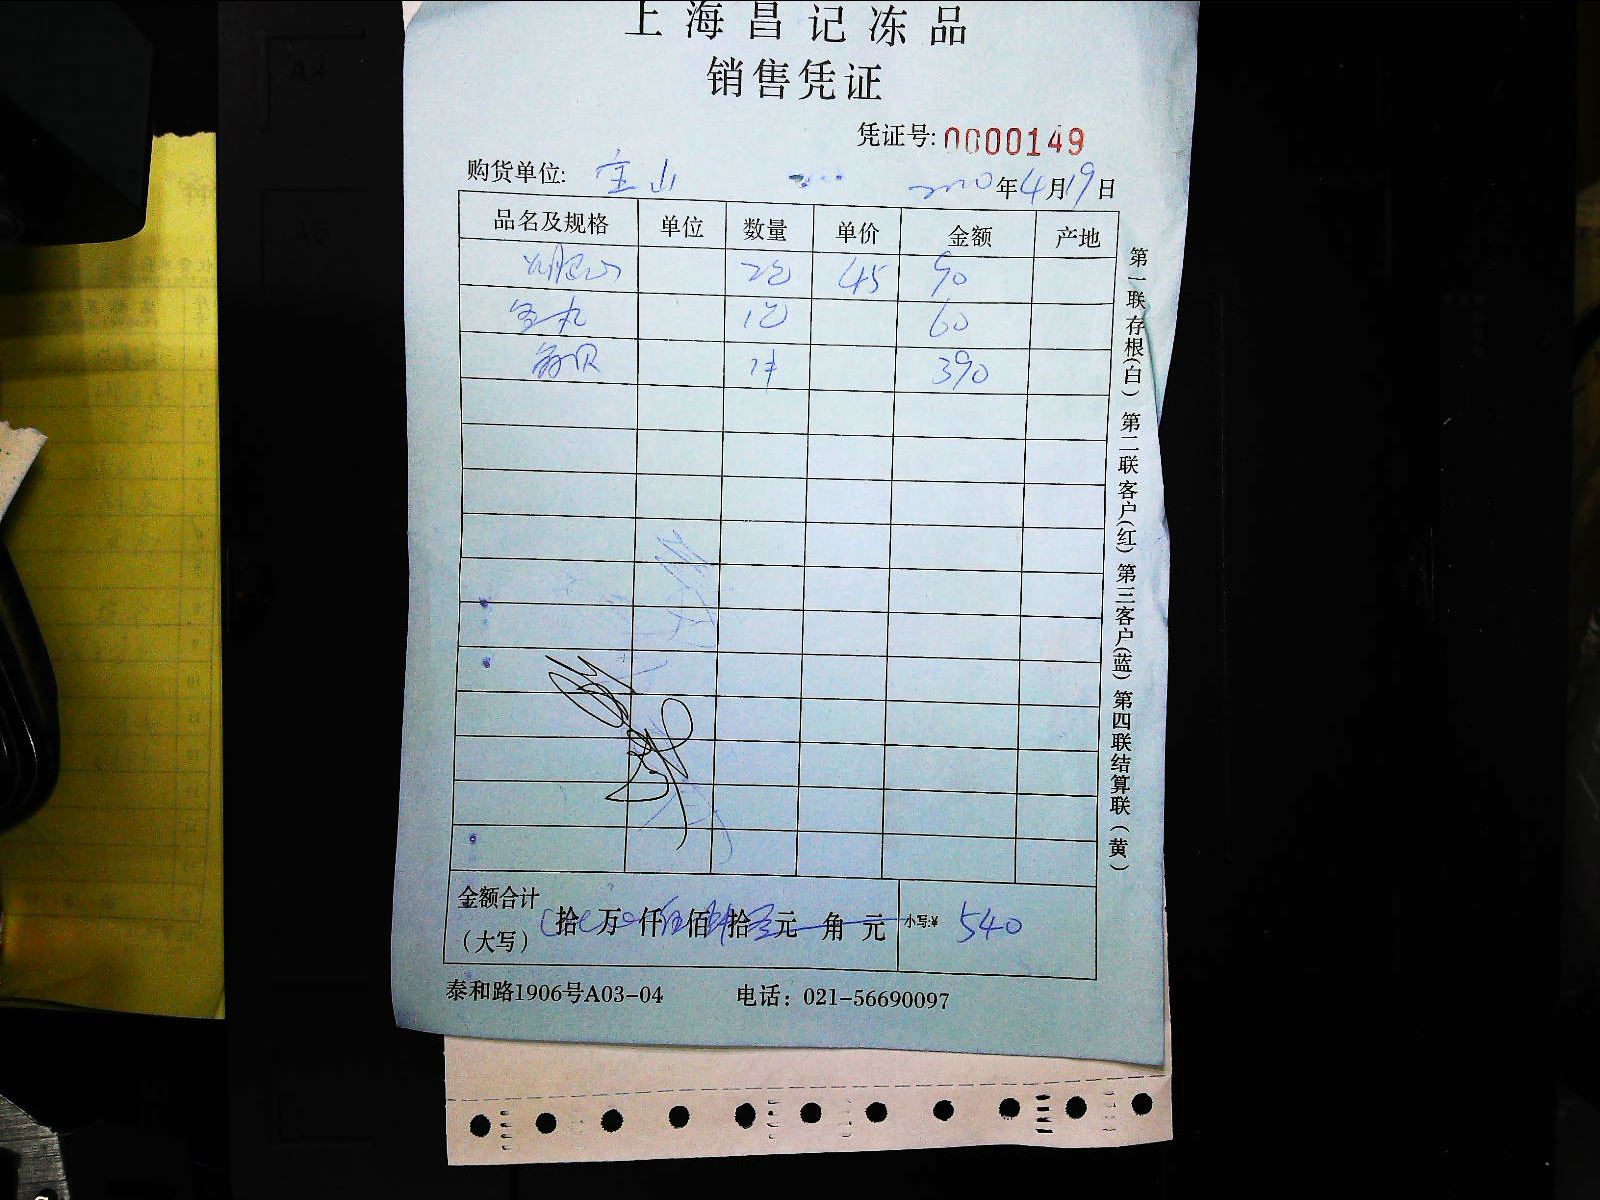 上海昌记冻品
销售凭证
凭证号: 0000149
购货单位: 宝山 2020年4月19日
品名及规格 单位 数量 单价 金额 产地
2包 45 90
1包 60
1件 390
金额合计
（大写） 拾 万 仟 佰 拾 元 角 元 小写:¥ 540
泰和路1906号A03-04 电话：021-56690097
第一联存根(白) 第二联客户(红) 第三客户(蓝) 第四联结算联(黄)